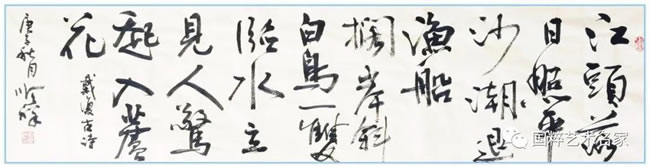 江頭落
日照平
沙潮退
漁船
擱岸斜
白鳥一雙
臨水立
見人驚
起入蘆
花
戴復古詩
庚子秋月
国粹艺术名家